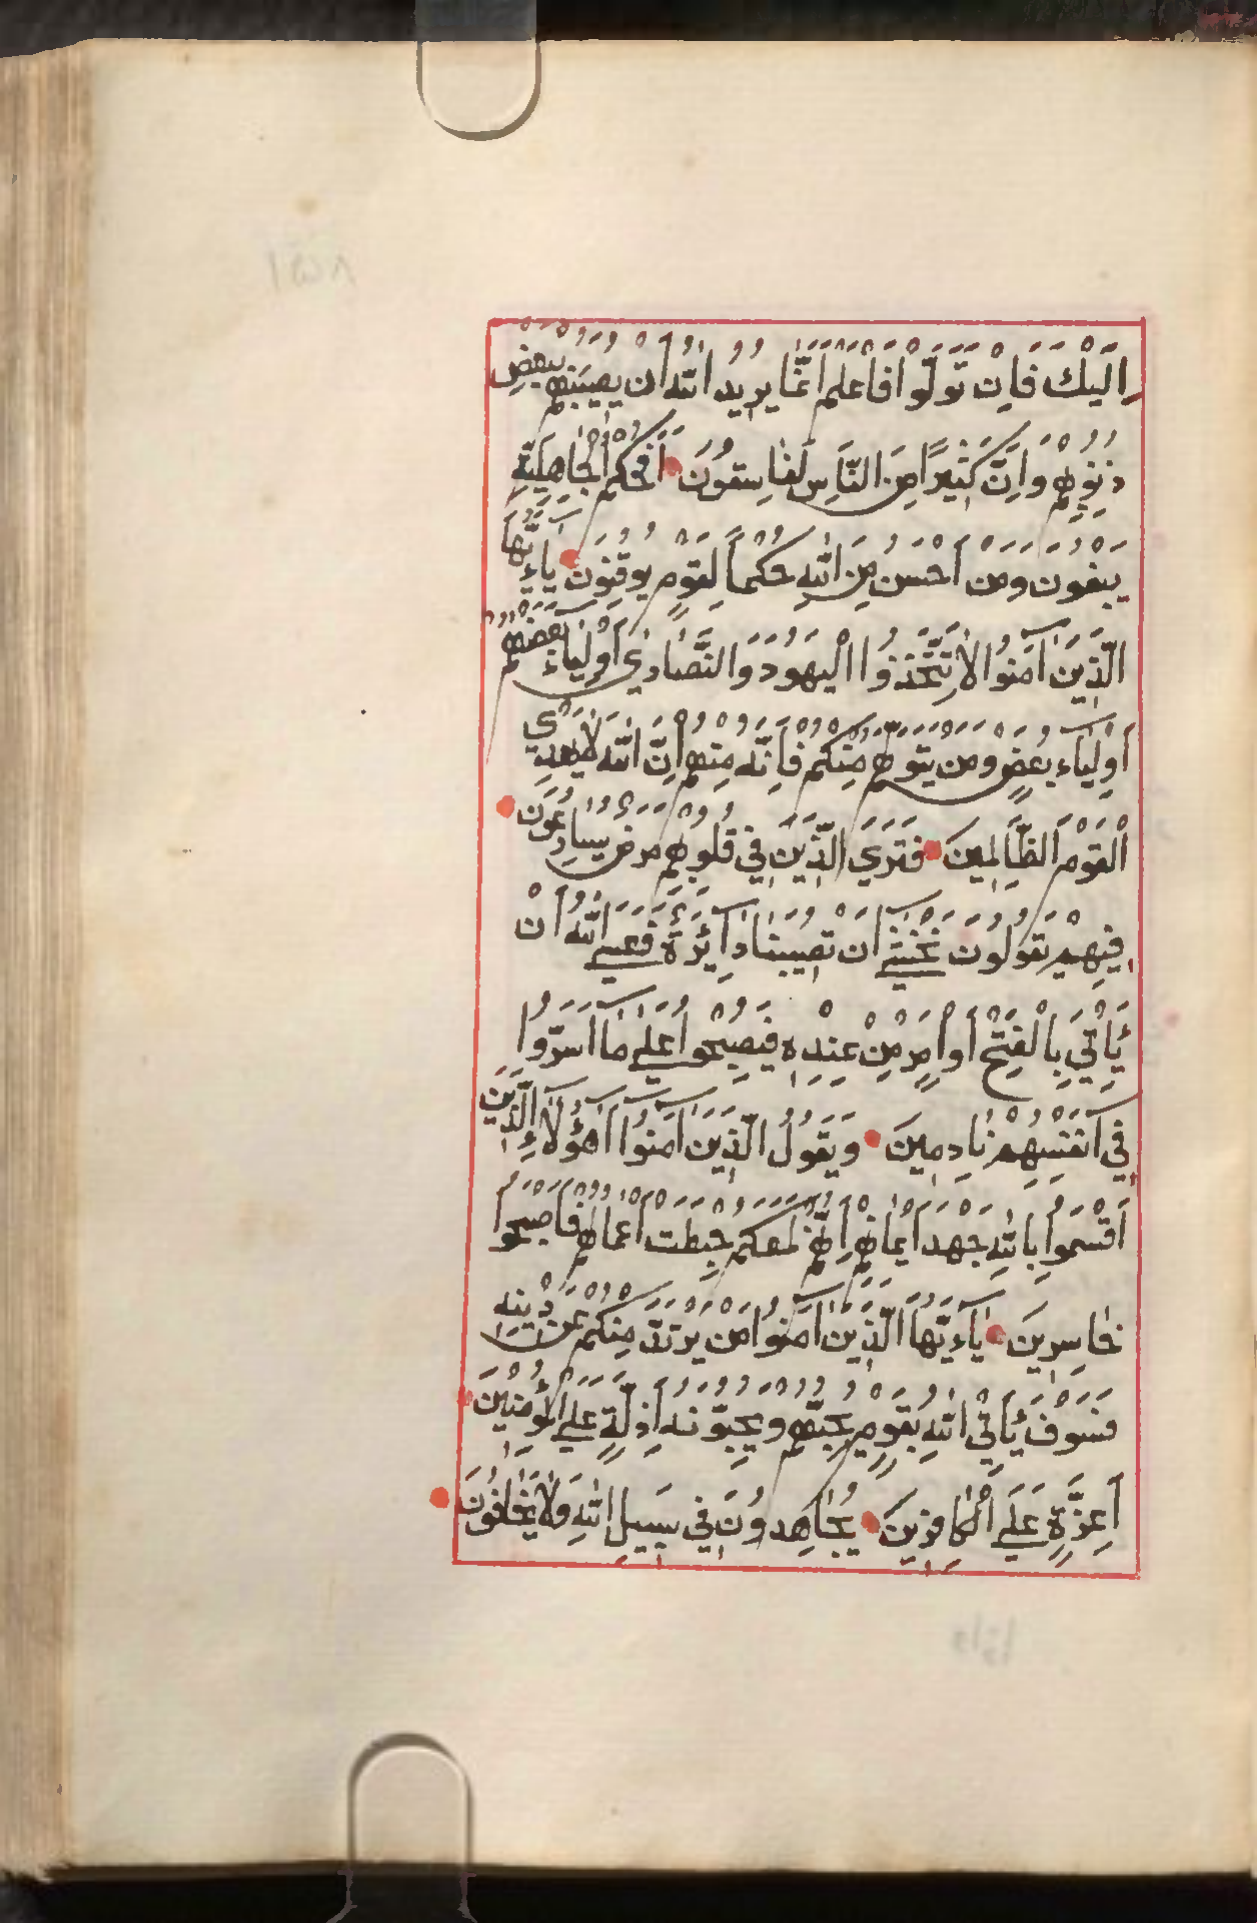 اِلَيْكَ فَاِنْ تَوَلَّوْا فَاعْلَمْ اَنَّمَا يُرِيدُ اللّٰهُ اَنْ يُصِيبَهُمْ بِبَعْضِ
ذُنُوبِهِمْ وَاِنَّ كَثِيرًا مِنَ النَّاسِ لَفَاسِقُونَ اَفَحُكْمَ الْجَاهِلِيَّةِ
يَبْغُونَ وَمَنْ اَحْسَنُ مِنَ اللّٰهِ حُكْمًا لِقَوْمٍ يُوقِنُونَ يَاءَيُّهَا
الَّذِينَ اٰمَنُوا لَا تَتَّخِذُوا الْيَهُودَ وَالنَّصَارٰي اَوْلِيَاءَ بَعْضُهُمْ
اَوْلِيَاءُ بَعْضٍ وَمَنْ يَتَوَلَّهُمْ مِنْكُمْ فَاِنَّهُ مِنْهُمْ اِنَّ اللّٰهَ لَا يَهْدِي
الْقَوْمَ الظَّالِمِينَ فَتَرَي الَّذِينَ فِي قُلُوبِهِمْ مَرَضٌ يُسَارِعُونَ
فِيهِمْ يَقُولُونَ نَخْشٰي اَنْ تُصِيبَنَا دَآئِرَةٌ فَعَسَي اللّٰهُ اَنْ
يَأْتِيَ بِالْفَتْحِ اَوْ اَمْرٍ مِنْ عِنْدِهِ فَيُصْبِحُوا عَلٰي مَا اَسَرُّوا
فِي اَنْفُسِهِمْ نَادِمِينَ وَيَقُولُ الَّذِينَ اٰمَنُوا اَهٰؤُلَاءِ الَّذِينَ
اَقْسَمُوا بِاللّٰهِ جَهْدَ اَيْمَانِهِمْ اِنَّهُمْ لَمَعَكُمْ حَبِطَتْ اَعْمَالُهُمْ فَاَصْبَحُوا
خَاسِرِينَ يَاءَيُّهَا الَّذِينَ اٰمَنُوا مَنْ يَرْتَدَّ مِنْكُمْ عَنْ دِينِهِ
فَسَوْفَ يَأْتِي اللّٰهُ بِقَوْمٍ يُحِبُّهُمْ وَيُحِبُّونَهُ اَذِلَّةٍ عَلَي الْمُؤْمِنِينَ
اَعِزَّةٍ عَلَي الْكَافِرِينَ يُجَاهِدُونَ فِي سَبِيلِ اللّٰهِ وَلَا يَخَافُونَ